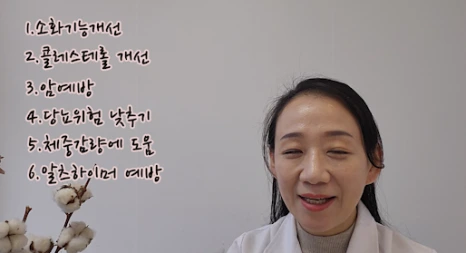 1.소화기능개선
2.콜레스테롤 개선
3.암예방
4.당뇨위험 낮추기
5.체중감량에 도움
6.알츠하이머 예방